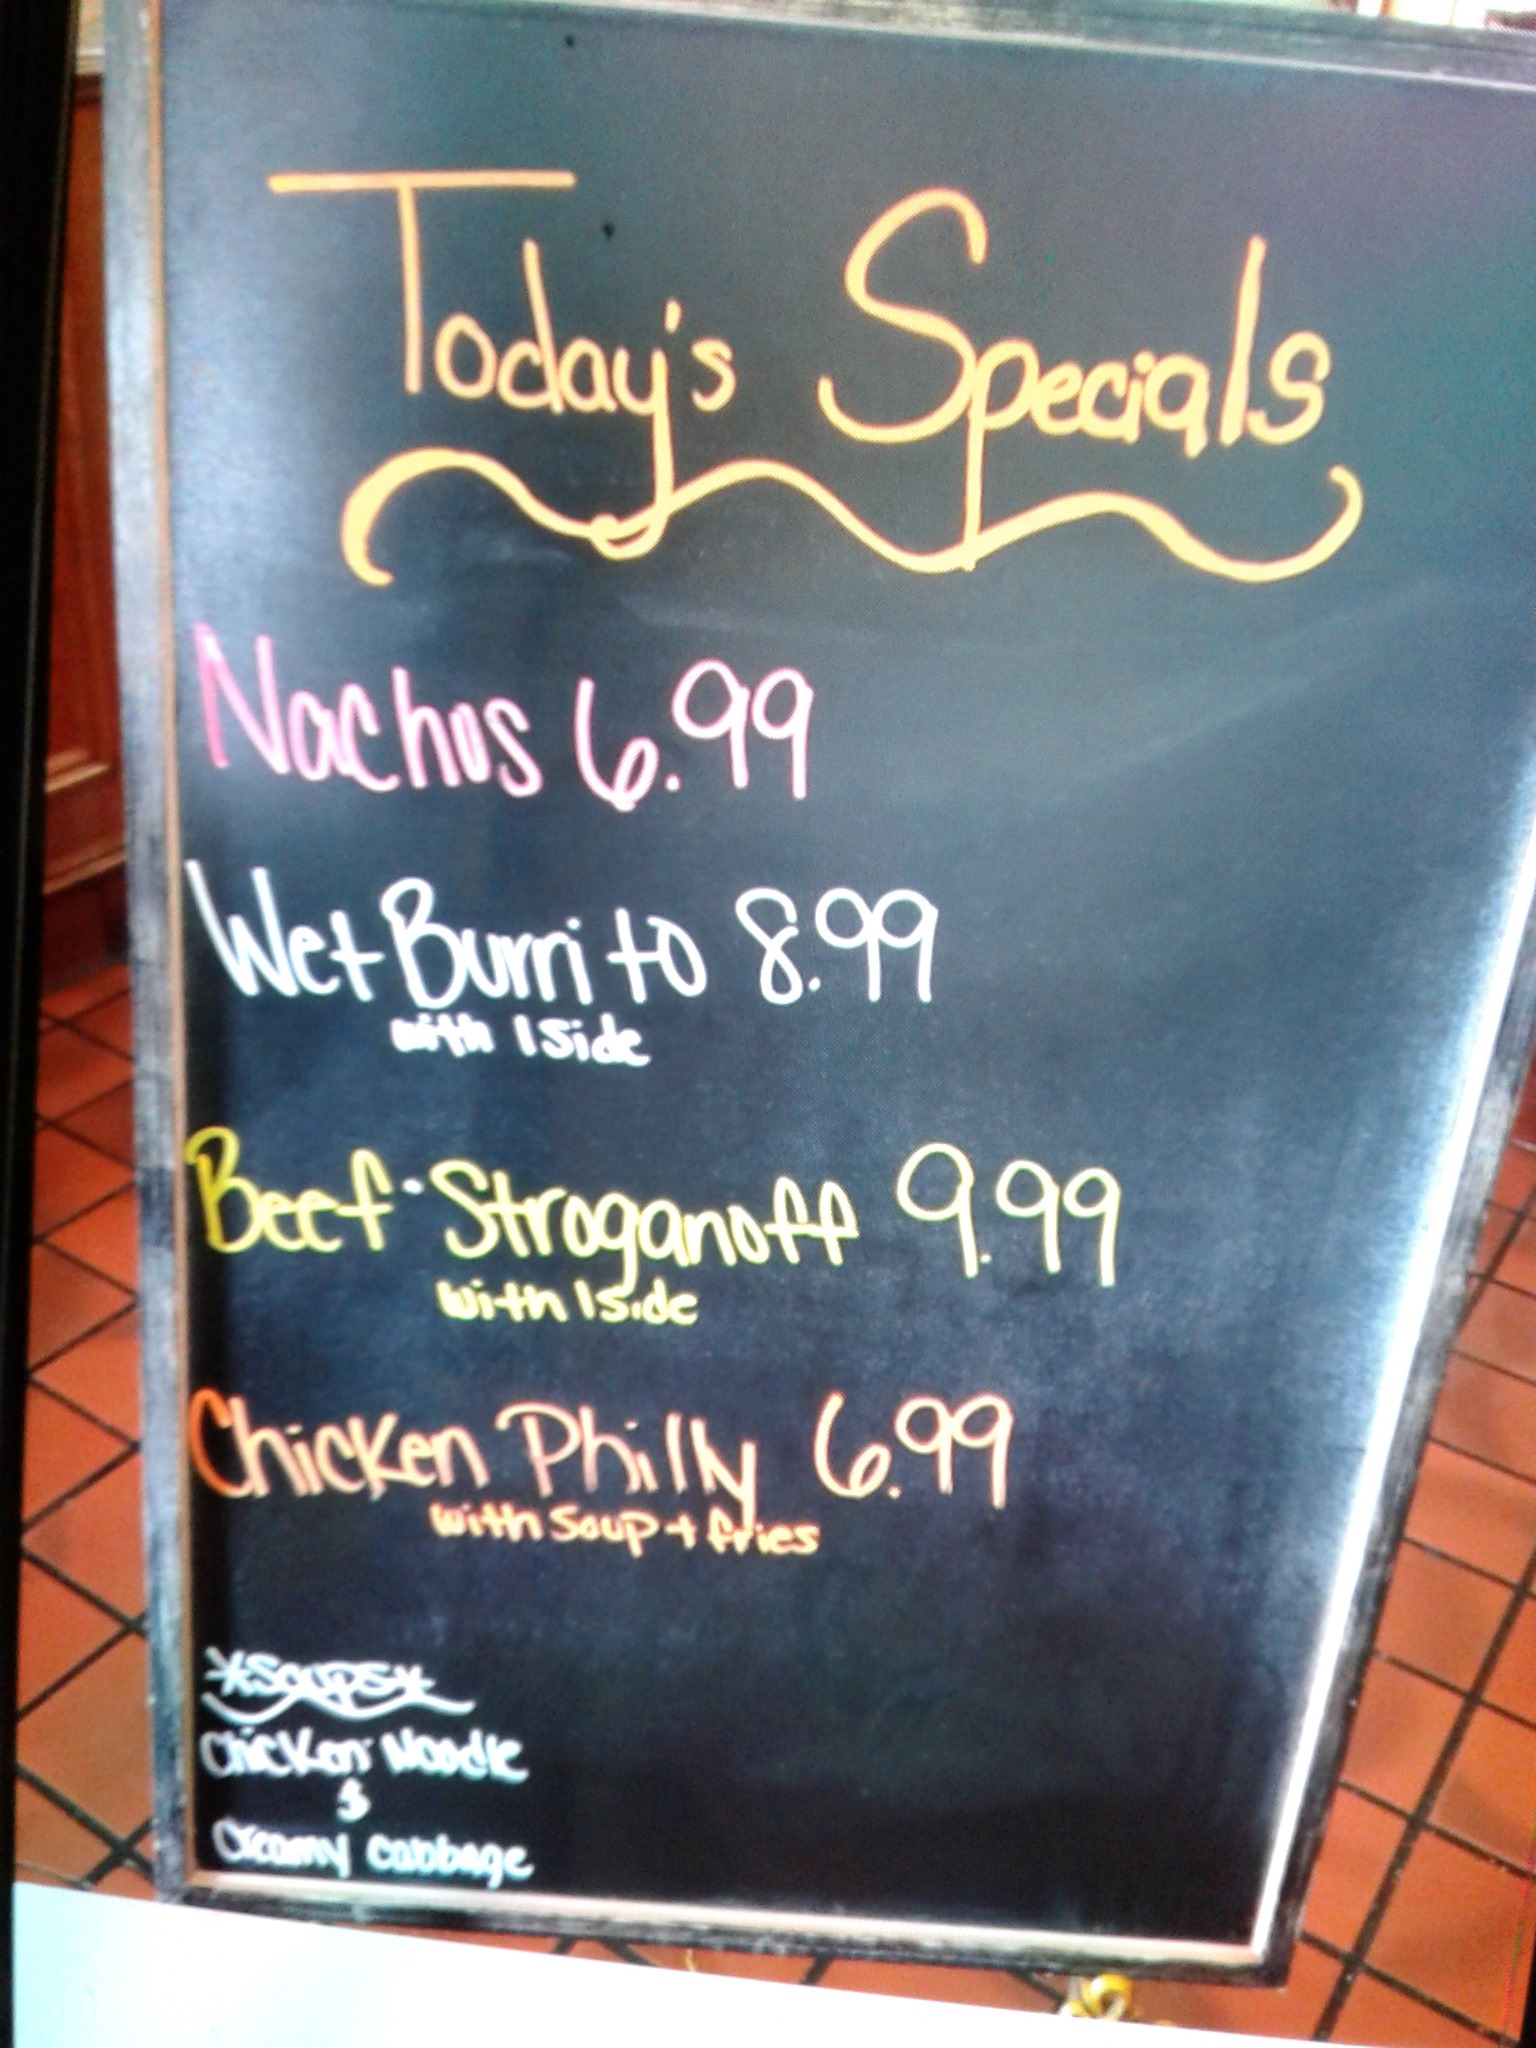 Today's Specials
Nachos 6.99
Wet Burrito 8.99
with 1 side
Beef Stroganoff 9.99
with 1 side
Chicken Philly 6.99
with soup + fries
*Soups*
Chicken Noodle
&
Creamy cabbage